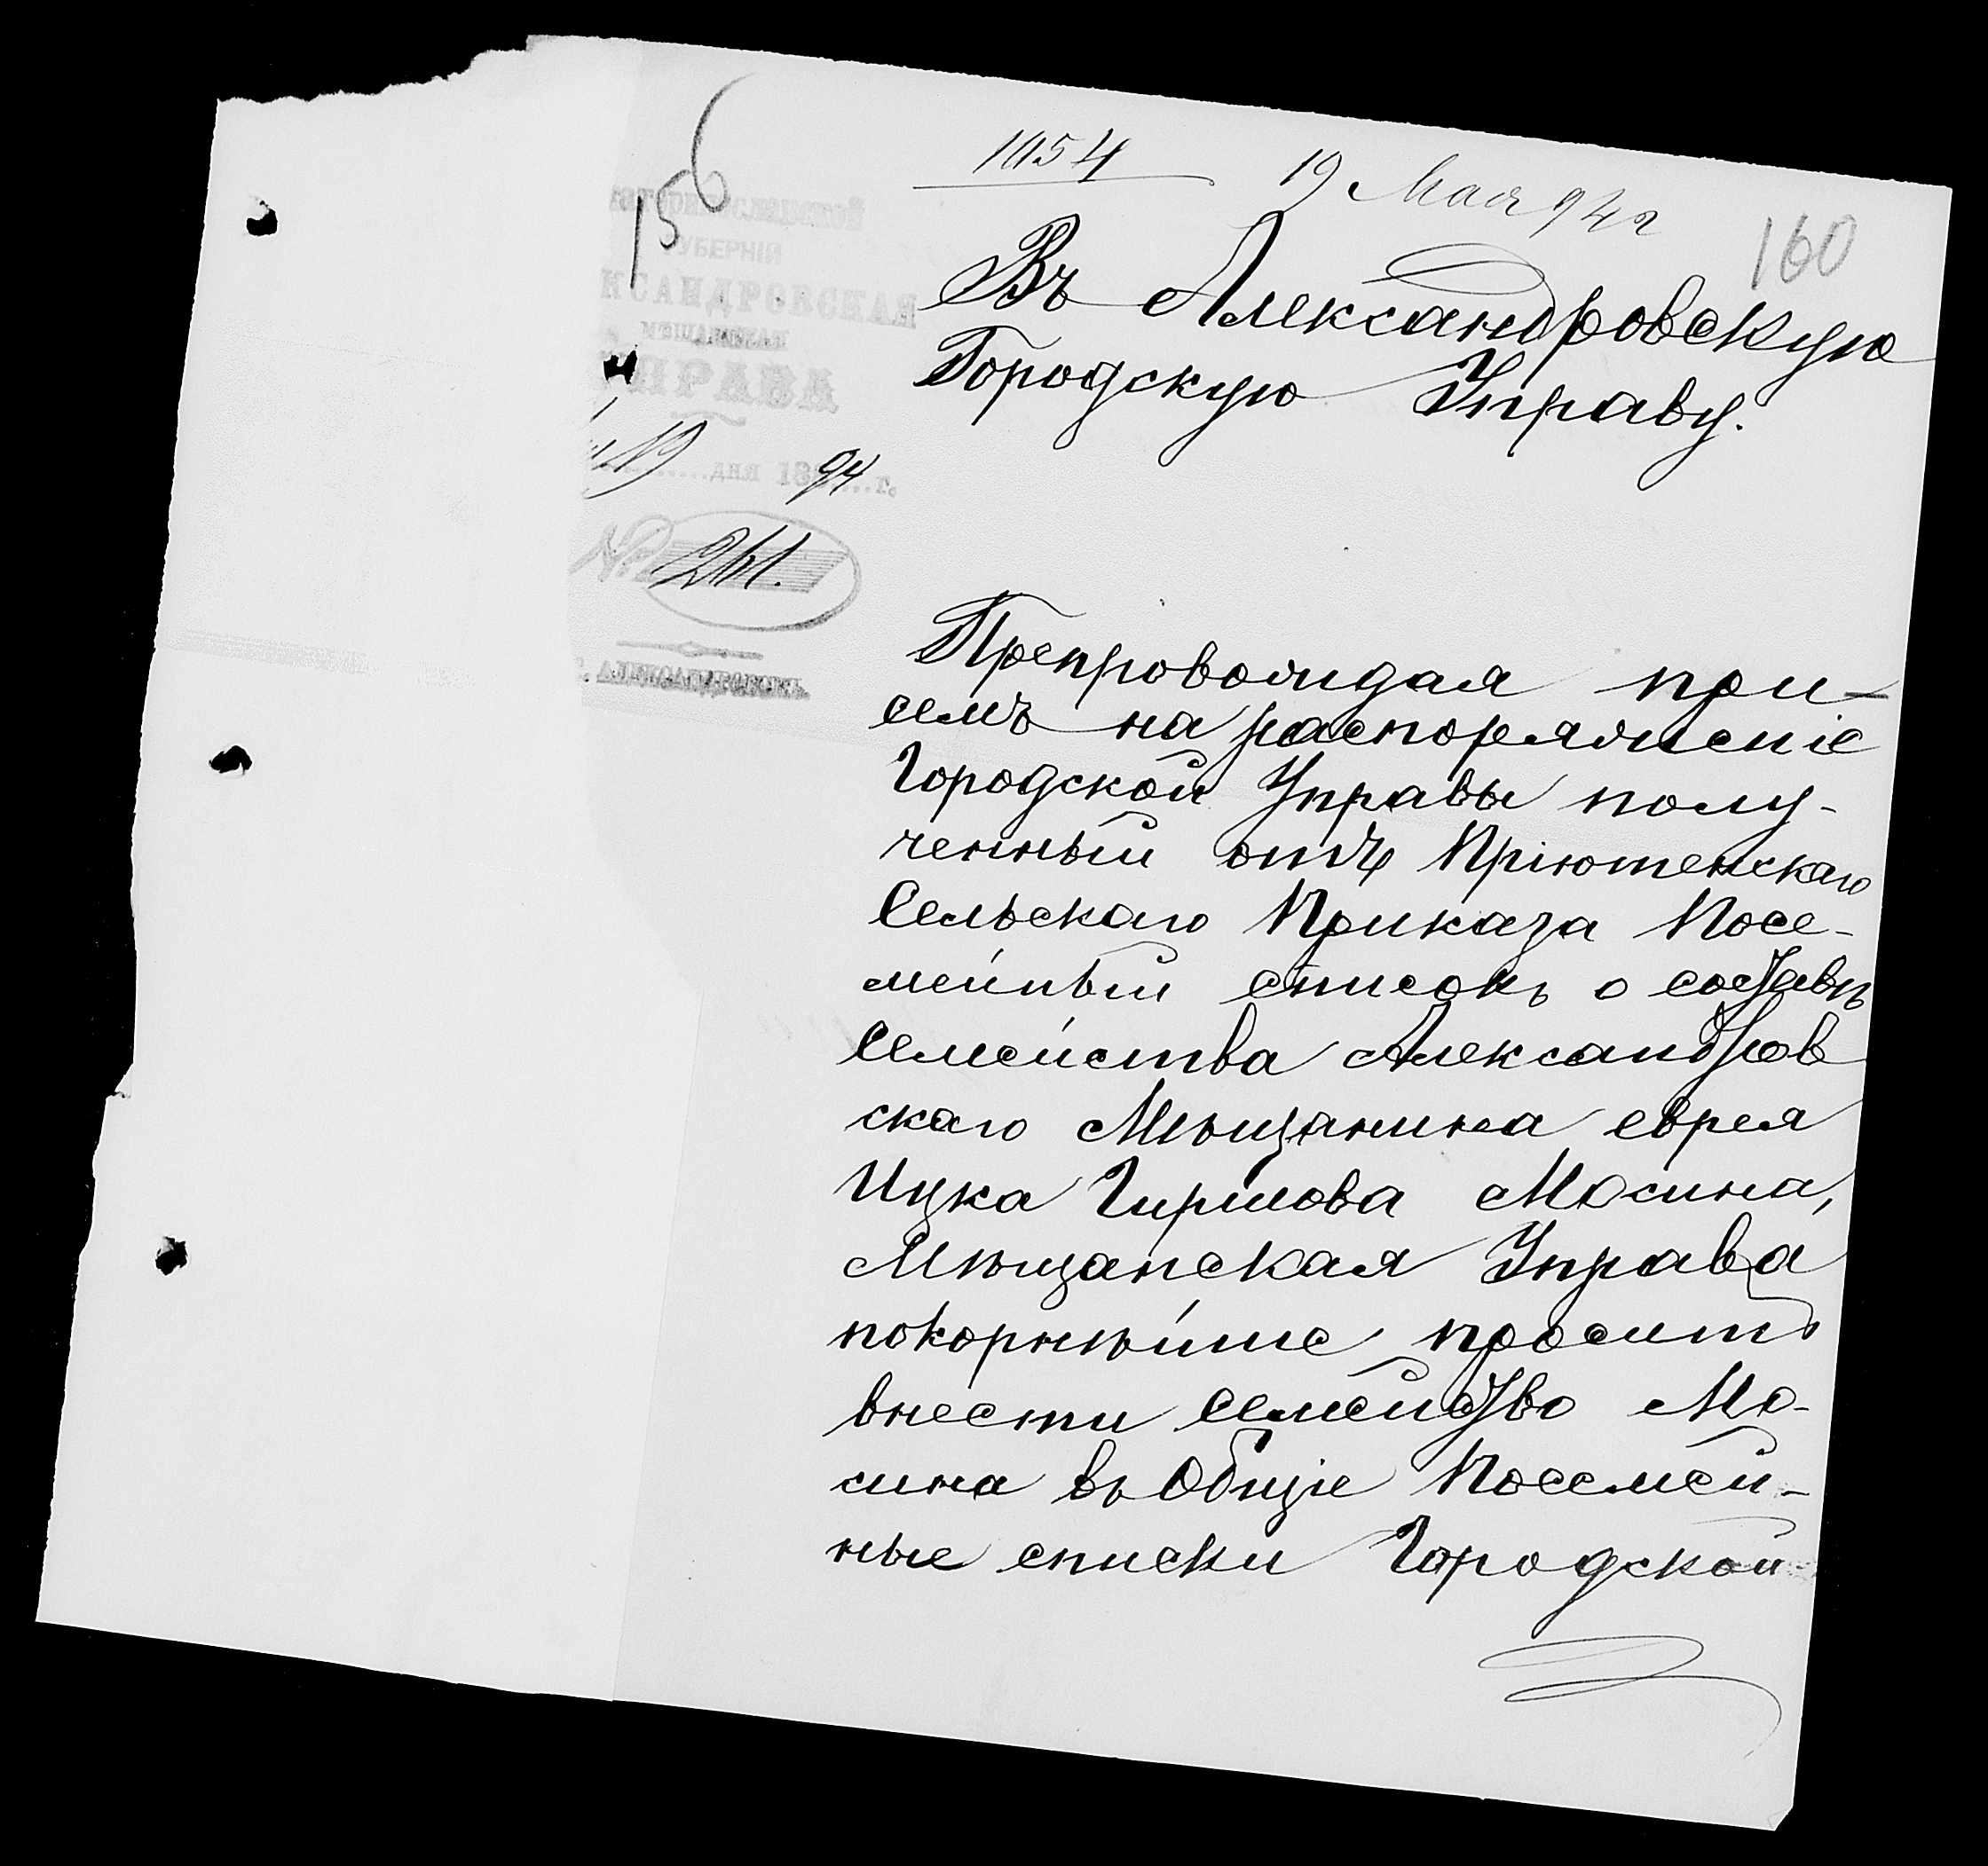 1054 19 Мая 94 г
156
160
Екатеринославской
ГУБЕРНІИ
КСАНДРОВСКАЯ
МѢЩАНСКАЯ
УПРАВА
19 дня 188 94 г.
№ 261.
г. АЛЕКСАНДРОВСКЪ
Въ Александровскую
Городскую Управу.
Препровождая при-
семъ на распоряженіе
Городской Управы полу-
ченный отъ Пріютенскаго
Сельскаго Приказа Посе-
мейный списокъ о составѣ
Семейства Александров
скаго Мѣщанина еврея
Ицка Гиршова Мосина,
Мѣщанская Управа
покорнѣйше проситъ
внести Семейство Мо-
сина въ Общіе Посемей-
ные списки Городской